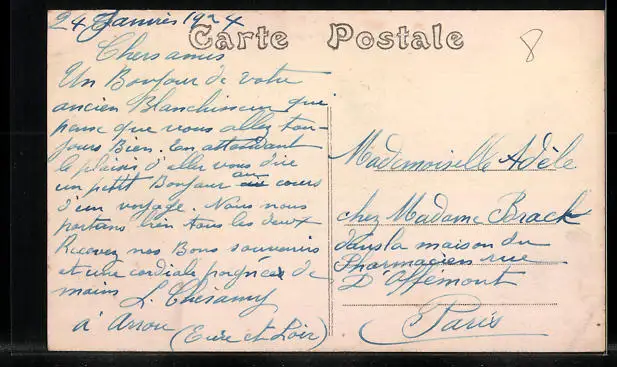 24 Janvier 1924
Carte Postale
8
Chers amis
Un Bonjour de votre
ancien Blanchisseur qui
panse que vous allez tou-
jours Bien. En attendant
le plaisir d'aller vous dire
un petit Bonjour au cours
d'un voyage. Nous nous
portons bien tous les deux
Recevez nos Bons souvenirs
et une cordiale poignée de
mains
à Arrou (Eure et Loir)
Mademoiselle Adèle
chez Madame Brack
dans la maison du
Pharmacien rue
D'Offémont
Paris